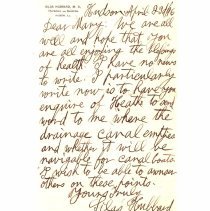 SILAS HUBBARD, M. D.
Hudson April 8
Dear Mary: We are all
well and hope that you
are all enjoying the blessings
of health. I have no news
to write. I particularly
write now is to have you
enquire of Heath to and
word to me where the
drainage canal empties
and whether it will be
navigable for canal boats.
I wish to be able to answer
others on these points.
Yours truly
Silas Hubbard